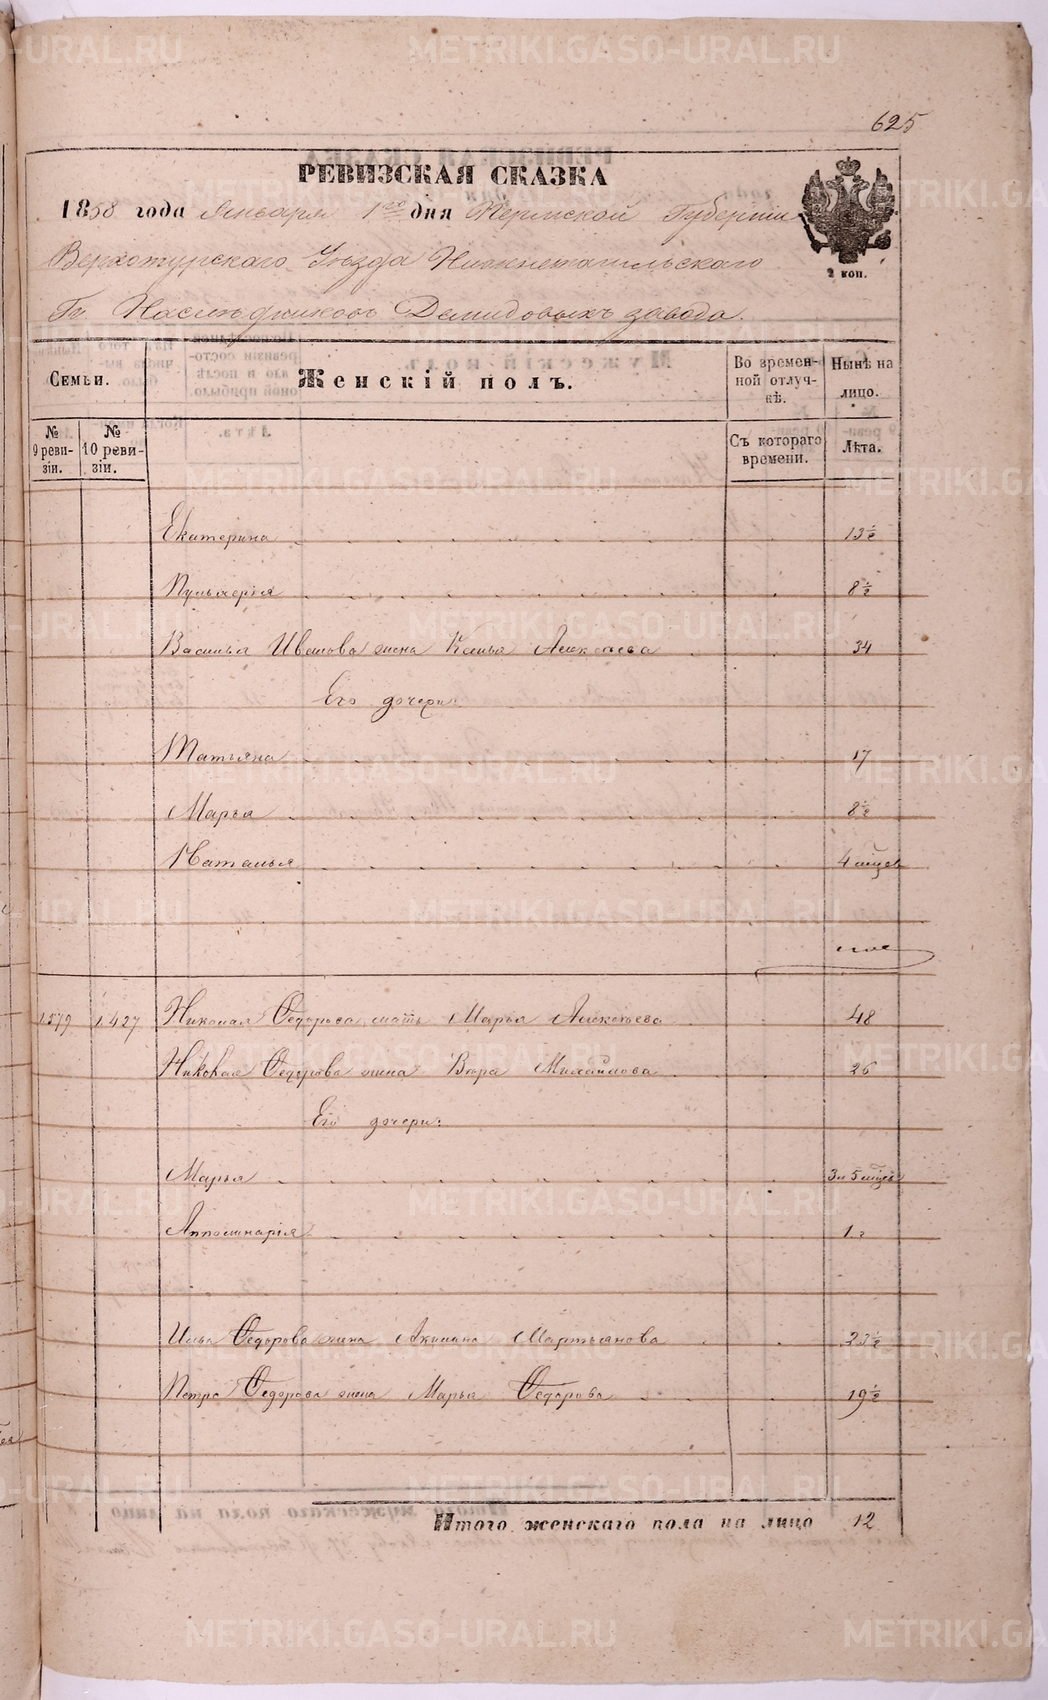 625
РЕВИЗСКАЯ СКАЗКА
1858 года Января 1го дня Пермской Губернии
2 коп.
Верхотурскаго Уѣзда Нижнетагильскаго
Гг. Наслѣдниковъ Демидовыхъ завода.
Семьи.
Женскій полъ.
Во времен-
ной отлуч-
кѣ.
Нынѣ на
лицо.
№
9 реви-
зіи.
№
10 реви-
зіи.
Съ котораго
времени.
Лѣта.
Екатерина 13 ½
Пульхерія 8 ½
Василья Иванова жена Ксенья Алексѣева 34
Его дочери:
Татьяна 17
Марья 8 ½
Наталья 4 мѣсцев
1579 1427 Николая Ѳедорова мать Марья Алексѣева 48
Николая Ѳедорова жена Вѣра Михайлова 26
Его дочери:
Марья 3 и 5 мѣсцев
Апполинарія 1 г
Ильи Ѳедорова жена Акилина Мартьянова 23 ½
Петра Ѳедорова жена Марья Ѳедорова 19 ½
Итого женскаго пола на лицо 12
METRIKI.GASO-URAL.RU